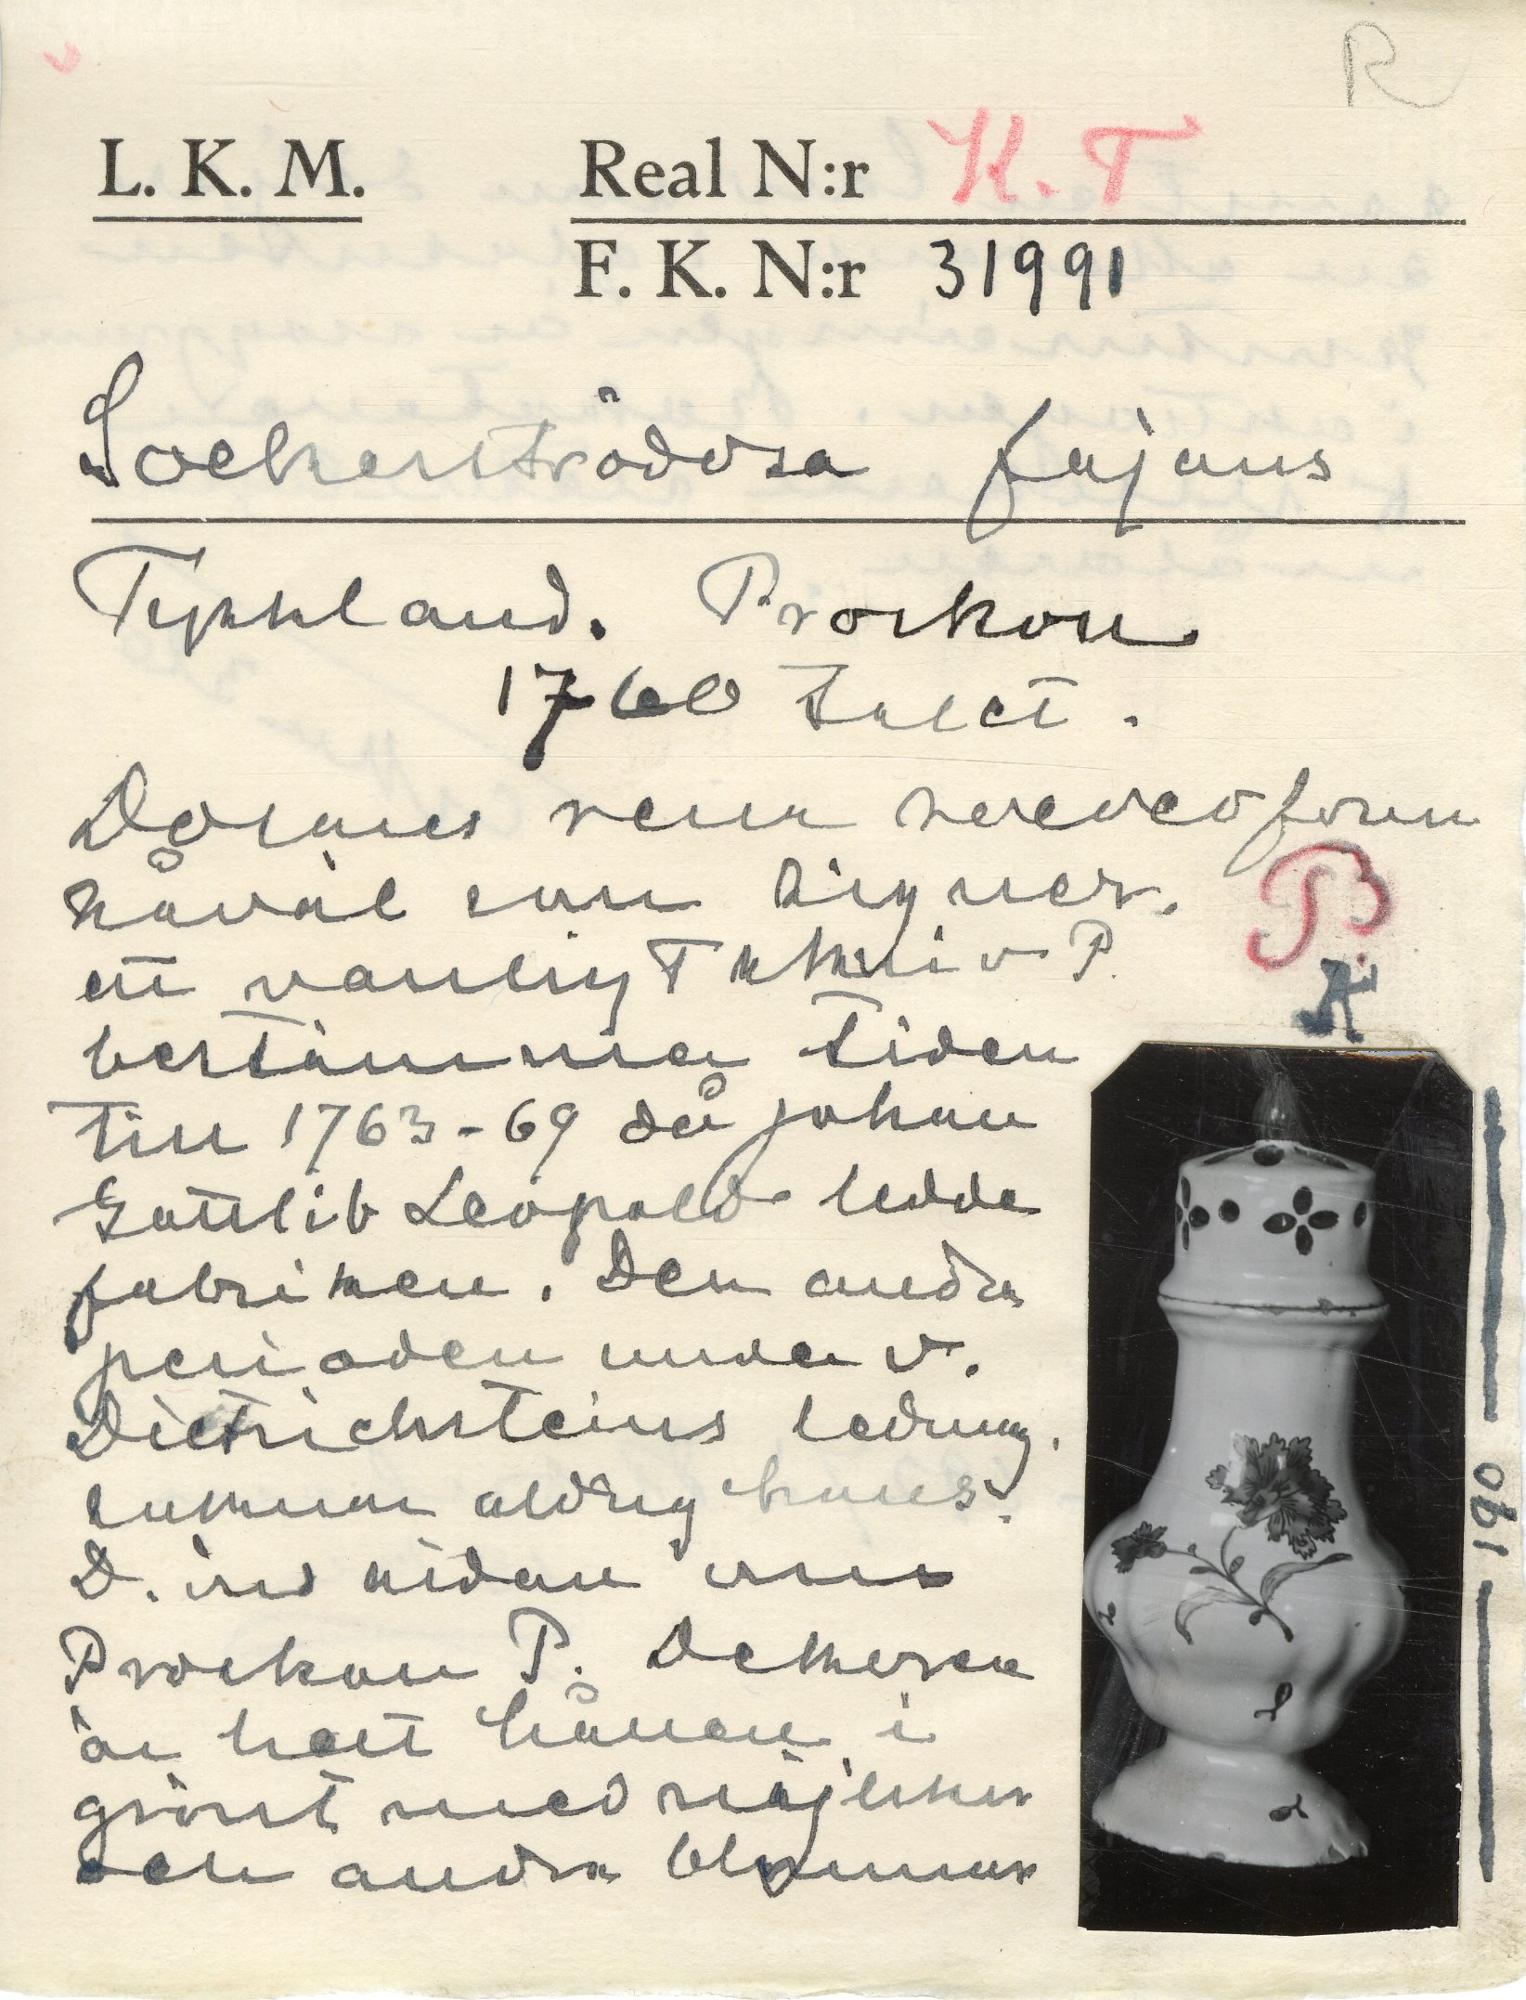 R
L. K. M. Real N:r K. T
F. K. N:r 31991
Sockerströdosa fajans
Tyskland. Proskou
1760 talet.
Dosans rena rococoform
såväl som sign er.
ett vanligt skrivv P.
bestämmer tiden
till 1763-69 då Johan
Gottlib Leopold ledde
fabriken. Den andra
perioden under v.
Dietrichsteins ledning.
aldrig
D. sidan
Proskou P. Dekoren
är helt hållen i
grönt med nejlikor
och andra blommor
P3
K
190